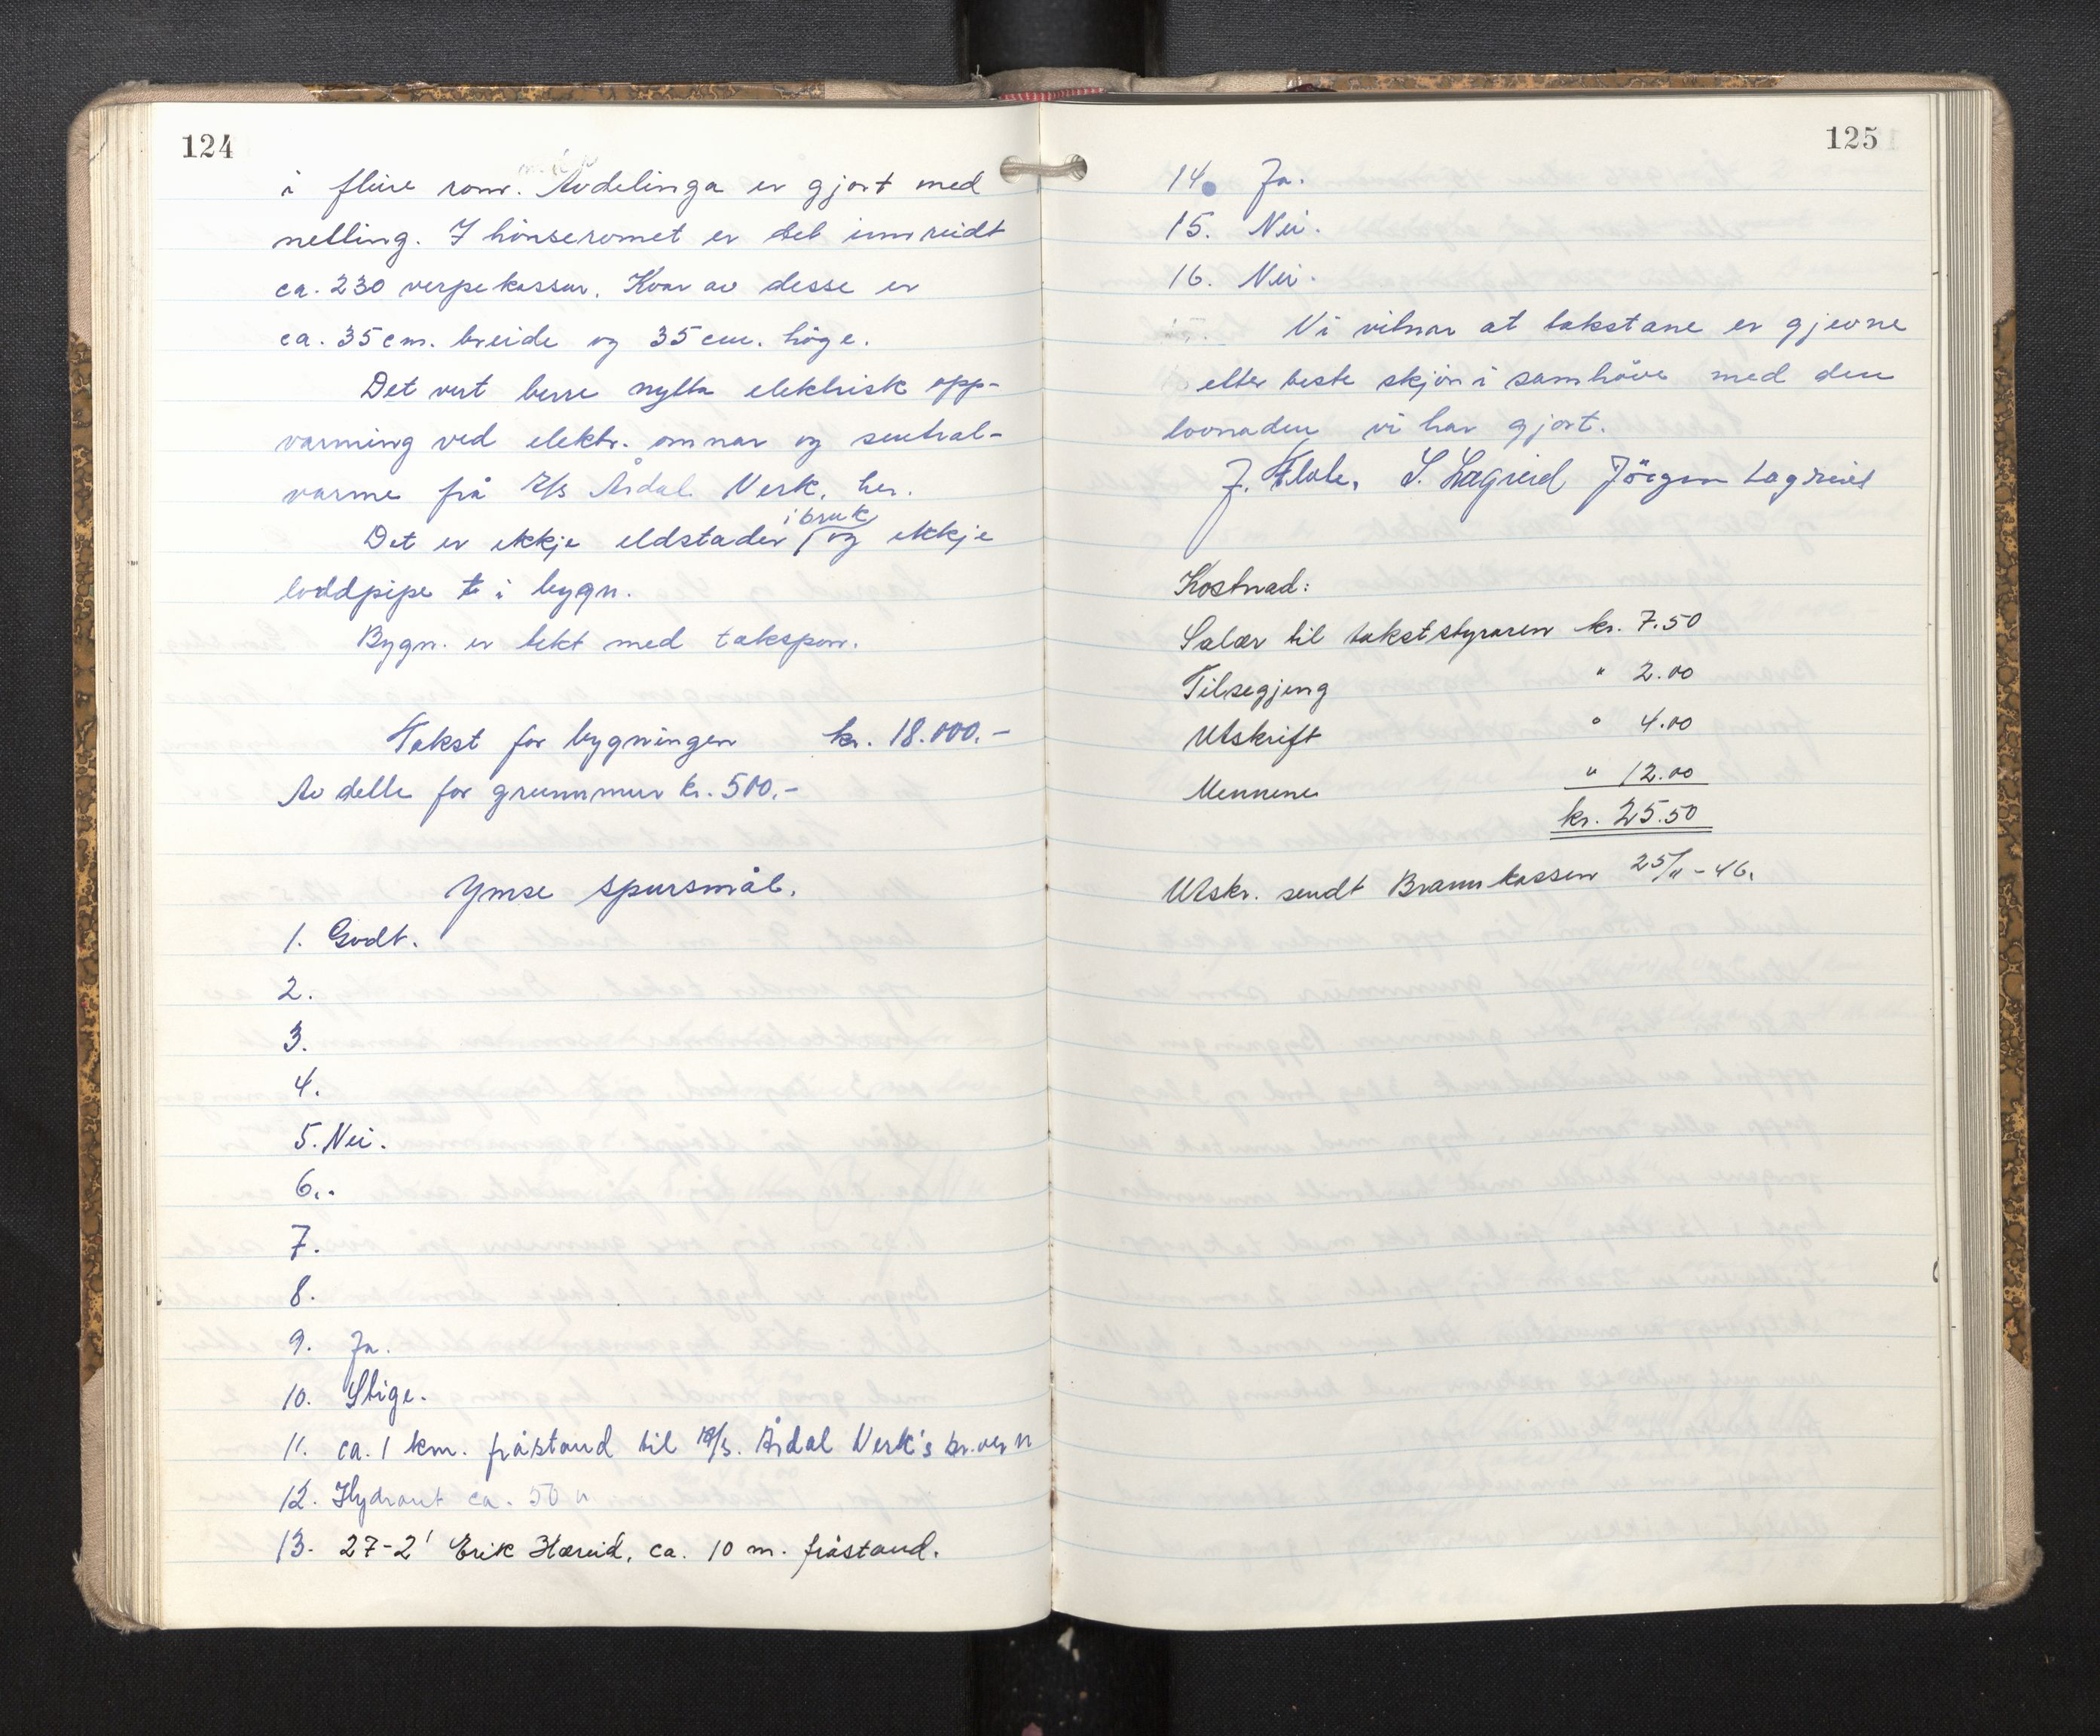 124
i fleire rom. Avdelinga er gjort med
netting. I hönseromet er det innreidt
ca. 230 verpekassar. Kvar av desse er
ca. 35 cm. breide og 35 cm. höge.
Det vert berre nytta elektrisk opp-
varming ved elektr. omnar og sentral-
varme frå A/S Årdal Verk. her.
i bruk
Det er ekkje eldstader og ekkje
loddpipe i bygn.
Bygn. er tekt med takspon.
Takst for bygningen kr. 18.000.-
Av dette for grunnmur kr. 500.-
Ymse spursmål.
1. Godt.
2.
3.
4.
5. Nei.
6..
7.
8.
9. Ja.
10. Stige.
11. ca. 1 km. fråstand til A/S. Årdal Verk's br.vern
12. Hydrant ca. 50 m
13. 27-2' Erik Hæreid, ca. 10 m. fråstand.
125
14. Ja.
15. Nei.
16. Nei.
Vi vitnar at takstane er gjevne
etter beste skjön i samhöve med den
lovnaden vi har gjort.
J. S. Lægreid Jörgen Lægreid
Kostnad:
Salær til takststyraren kr. 7.50
Tilsegjeng " 2.00
Utskrift " 4.00
Mennene " 12.00
kr. 25.50
Utskr. sendt Brannkassen 25/11-46.